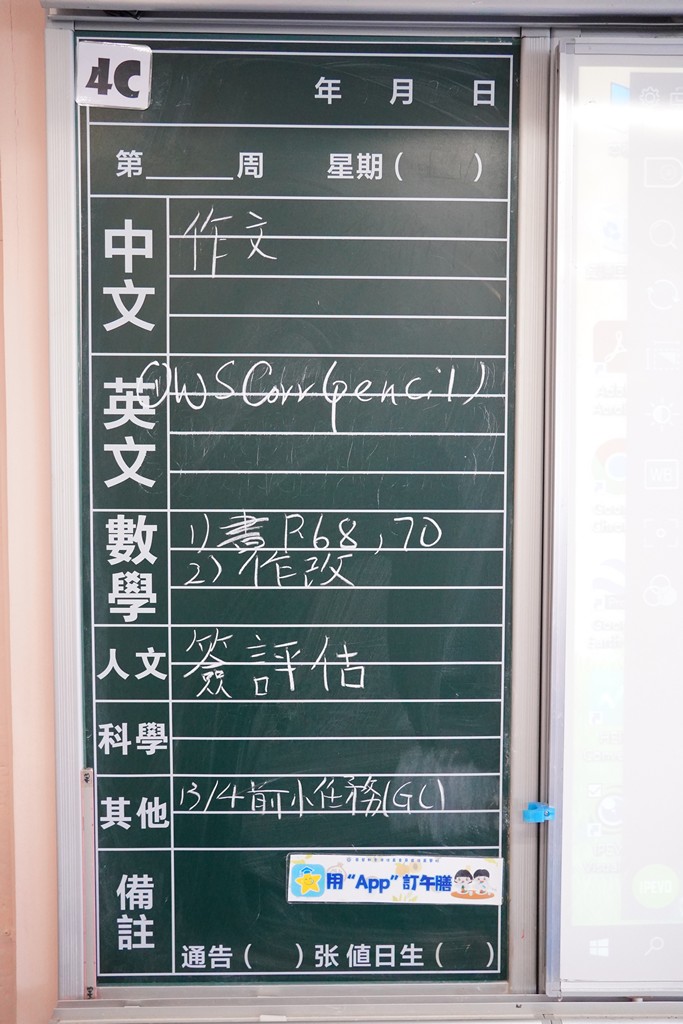 4C
年 月 日
第______周 星期( )
中文 作文
英文 ①WS Corr(pencil)
數學 1) 書 P.68, 70
2) 作改
人文 簽評估
科學
其他 13/4前小任務(GC)
備註
用 “App” 訂午膳
通告( )张 值日生( )
WB